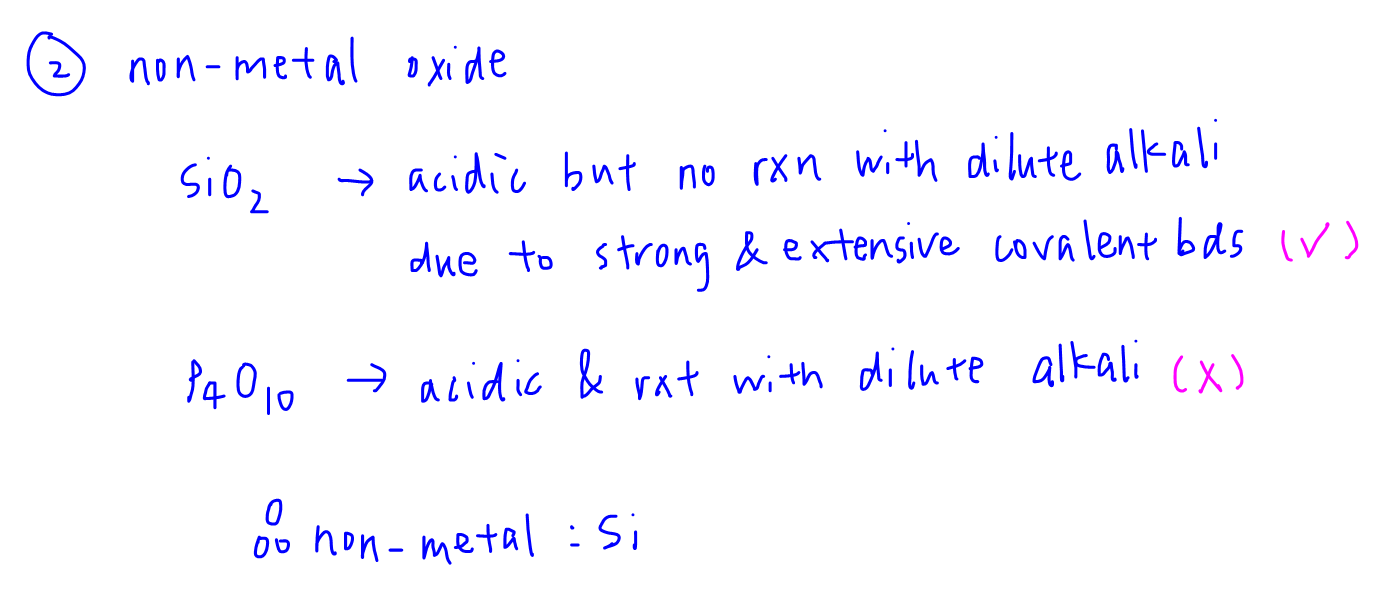 ② non-metal oxide
SiO₂ → acidic but no rxn with dilute alkali
due to strong & extensive covalent bds (✓)
P₄O₁₀ → acidic & rxt with dilute alkali (X)
∴ non-metal : Si